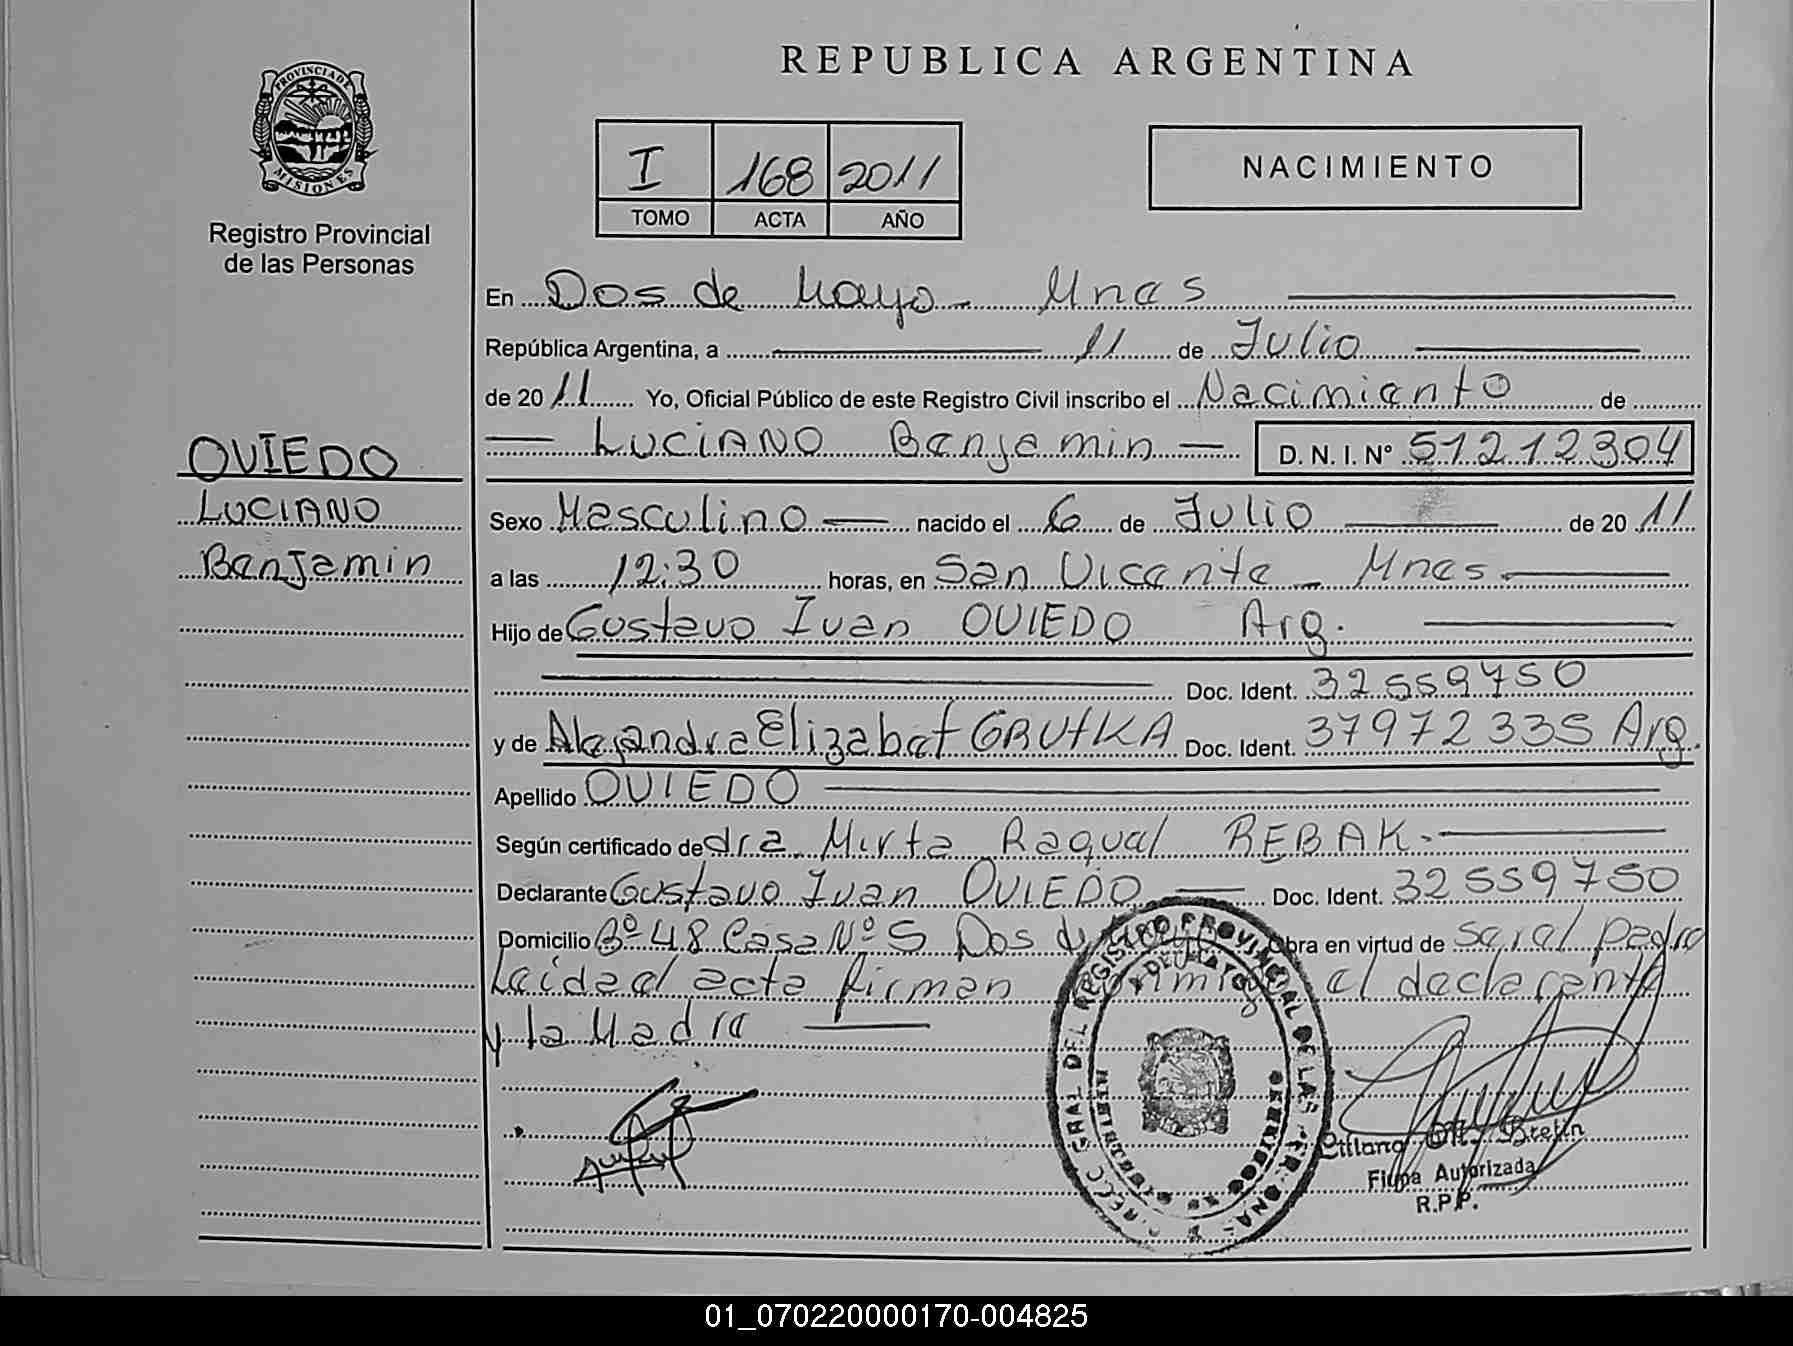 REPUBLICA ARGENTINA
PROVINCIA DE MISIONES
Registro Provincial
de las Personas
I 168 2011
TOMO ACTA AÑO
NACIMIENTO
En Dos de Mayo - Mnes
República Argentina, a 11 de Julio
de 20 11 Yo, Oficial Público de este Registro Civil inscribo el Nacimiento de
LUCIANO Benjamin D. N. I. N° 51212304
OVIEDO
LUCIANO
Benjamin
Sexo Masculino nacido el 6 de Julio de 20 11
a las 12:30 horas, en San Vicente - Mnes
Hijo de Gustavo Ivan OVIEDO Arg.
Doc. Ident. 32559750
y de Alejandra Elizabet GRUTKA Doc. Ident. 37972335 Arg.
Apellido OVIEDO
Según certificado de dra. Mirta Raquel REBAK.
Declarante Gustavo Ivan OVIEDO Doc. Ident. 32559750
Domicilio B° 48 Casa N° 5 Dos de Obra en virtud de
acta firman el declarante
y la Madre
REGISTRO PROVINCIAL DE LAS PERSONAS
Firma Autorizada
R.P.P.
01_070220000170-004825